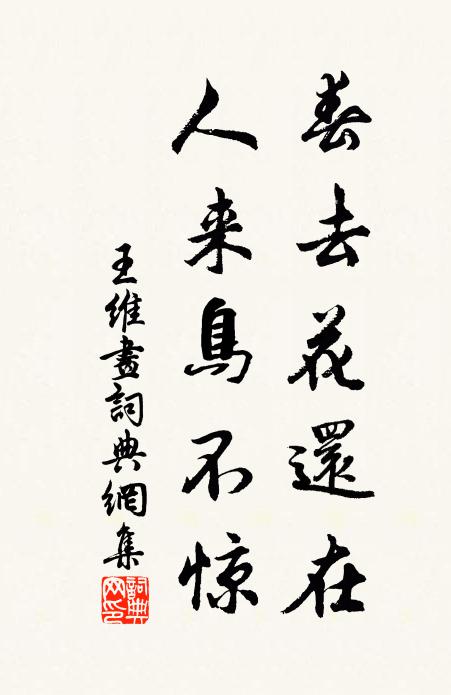 春去花還在
人来鳥不惊
王維畫詞典網集
詞典網印